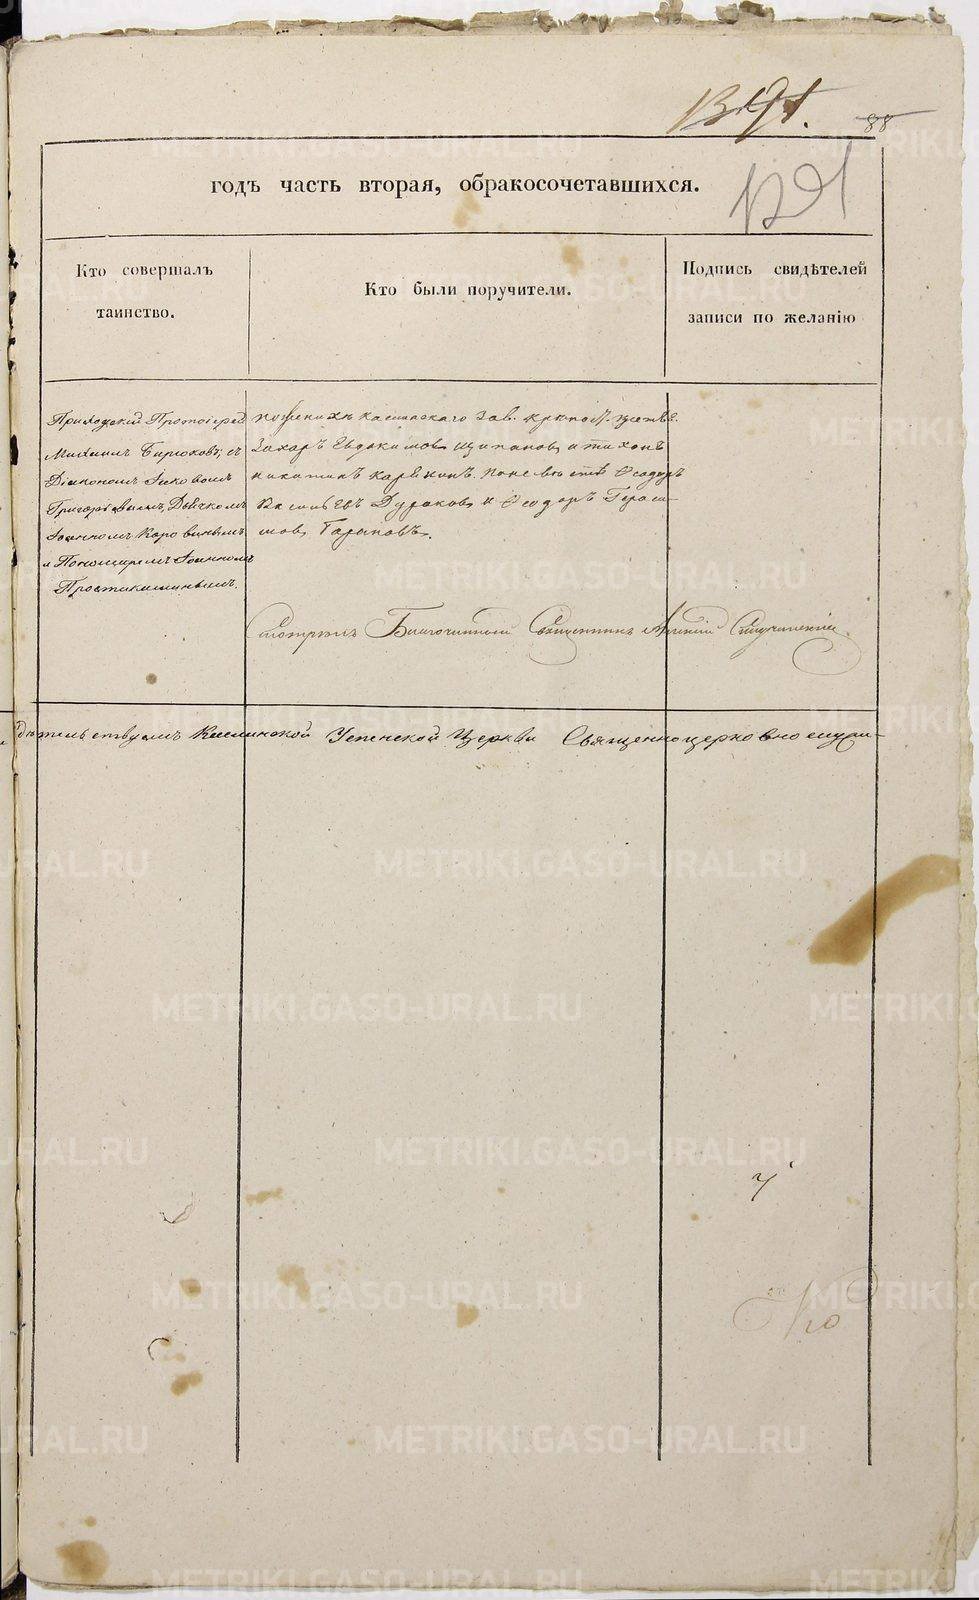 191.
88
191
годъ часть вторая, обракосочетавшихся.
Кто совершалъ
таинство.
Кто были поручители.
Подпись свидѣтелей
записи по желанію
Приходской Протоіерей
Михаилъ Бирюковъ, съ
Діакономъ Іаковомъ
Григорьевымъ, Дьячкомъ
Іоанномъ Коровинымъ
и Пономаремъ Іоанномъ
Простикишинымъ.
по женихѣ Каслинскаго зав.
Захаръ Евдокимовъ Щипановъ, и Тихонъ
Никитинъ Карѣкинъ. По невѣстѣ Ѳеодоръ
Васильевъ Дураковъ и Ѳеодоръ Гераси-
мовъ Тарановъ.
Смотрѣлъ Благочинный Священникъ
дѣтельствуемъ Каслинской Успенской Церкви Священноцерковнослужи-